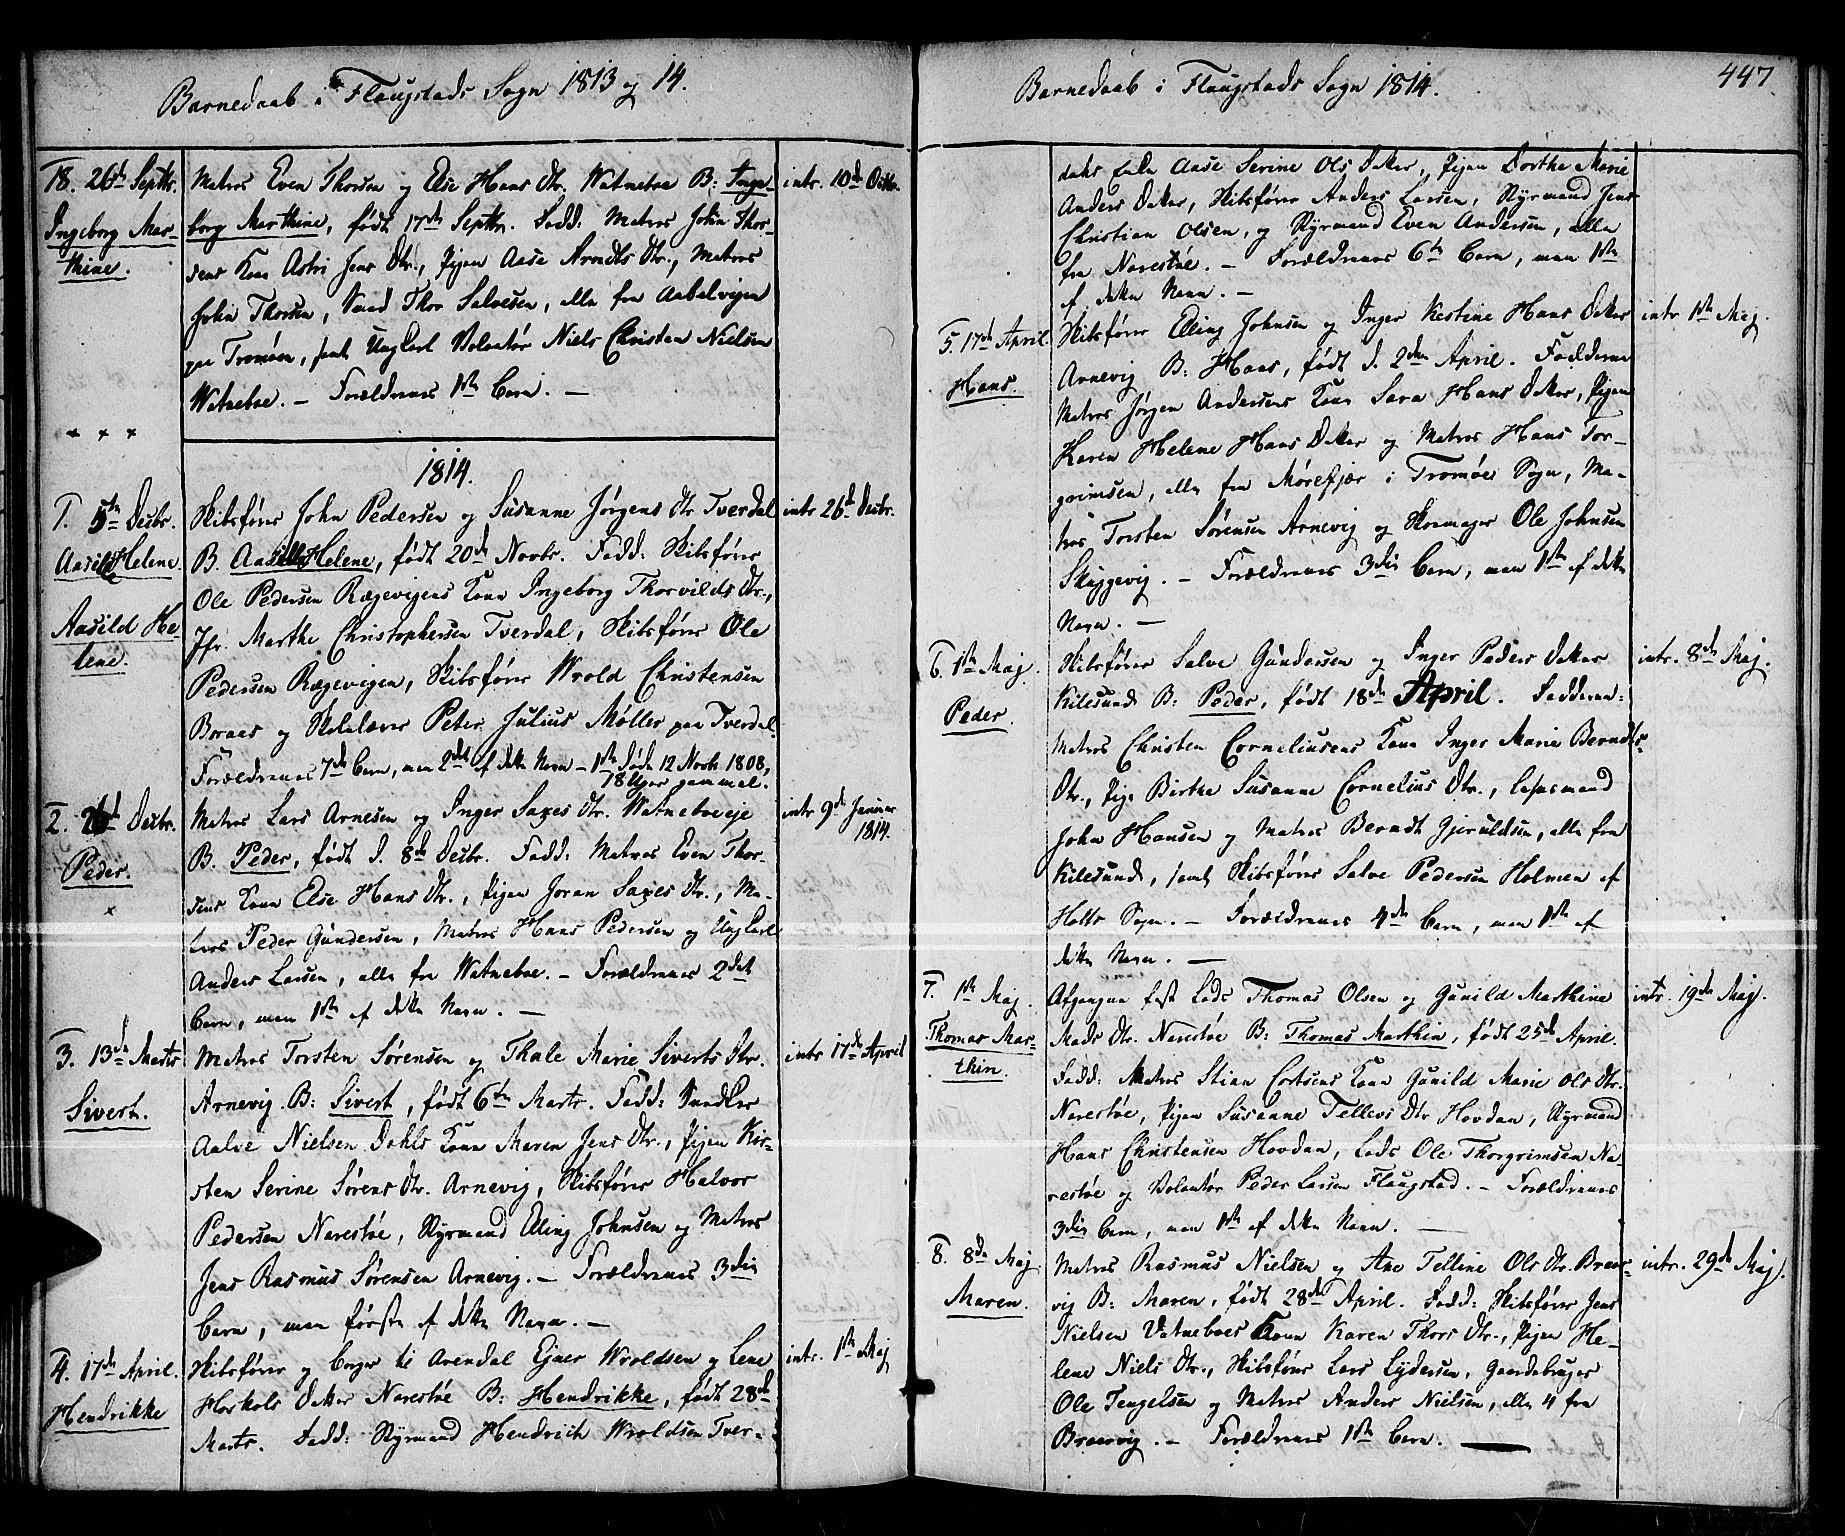 Barnedaab i Flaugstads Sogn 1813 og 14.
18. 26de Septbr.
Ingeborg Mar-
thine.
Matros Even Thorsen og Else Hans Dtr. Watneboe B: Inge-
borg Marthine, født 17de Septbr. Fadd: Matros John Thor-
sens Kone Astri Jens Dtr., Pigen Aase Arndts Dtr., Matros
John Thorsen, Svend Thor Salvesen, alle fra Aabelvigen
paa Tromøen, samt Ungkarl Volontør Niels Christen Nielsen
Watneboe. – Forældrenes 1ste Barn. –
intr. 10de Octbr.
1814.
1. 5te Decbr.
Aasild Helene
Aasild He-
lene.
Skibsfører John Pedersen og Susanne Jørgens Dtr Tverdal
B. Aasild Helene, født 20de Novbr. Fadd: Skibsfører
Ole Pedersen Rægevigens Kone Ingeborg Thorvilds Dtr.,
Jfr. Marthe Christophersen Tverdal, Skibsfører Ole
Pedersen Rægevigen, Skibsfører Wrold Christensen
Boraas og Skolelærer Peter Julius Møller paa Tverdal.
Forældrenes 7de Barn, men 2det af dette Navn – 1ste døde 12 Novb. 1808,
18 Uger gammel.
intr 26de Decbr.
2. 26de Decbr.
Peder.
Matros Lars Arnesen og Inger Saxes Dtr. Watneboeeje
B. Peder, født d. 8de Decbr. Fadd: Matros Even Thor-
sens Kone Else Hans Dtr., Pigen Joran Saxes Dtr., Ma-
tros Peder Gundersen, Matros Hans Pedersen og Ungkarl
Anders Larsen, alle fra Watneboe. – Forældrenes 2det
Barn, men 1ste af dette Navn. –
intr 9de Januar
1814.
3. 13de Marts
Sivert.
Matros Torsten Sørensen og Thale Marie Siverts Dtr.
Arnevig. B: Sivert, født 6te Marts. Fadd:
Aalve Nielsen Dahls Kone Maren Jens Dtr., Pigen Kir-
sten Serine Sørens Dtr. Arnevig, Skibsfører Halvor
Pedersen Narestøe, Styrmand Elling Johnsen og Matros
Jens Rasmus Sørensen Arnevig. – Forældrenes 3die
Barn, men første af dette Navn. –
intr 17de April
4. 17de April.
Hendrikke
Skibsfører og Borger til Arendal Ejner Wroldsen og Lene
Haskols Datter Narestøe B: Hendrikke, født 28de
Marts. Fadd: Styrmand Hendrich Wroldsen Tver-
intr. 1ste Maj
Barnedaab i Flaugstads Sogn 1814.
447.
dahl, Aase Serine Ols Datter, Pigen Dorthe Marie
Anders Datter, Skibsfører Anders Larsen, Styrmand Jens
Christian Olsen, og Styrmand Even Andersen, alle
fra Narestøe. – Forældrenes 6te Barn, men 1ste
af dette Navn. –
5. 17de April.
Hans.
Skibsfører Elling Johnsen og Inger Kestine Hans Datter
Arnevig B: Hans, født d. 2den April. Fadderne
Matros Jørgen Andersens Kone Sara Hans Datter, Pigen
Karen Helene Hans Datter og Matros Hans Tor-
grimsen, alle fra Mørefjær i Tromøe Sogn, Ma-
tros Torsten Sørensen Arnevig og Skomager Ole Johnsen
Skuggevig. – Forældrenes 3die Barn, men 1ste af dette
Navn. –
intr 1ste Maj.
6. 1ste Maj.
Peder.
Skibsfører Salve Gundersen og Inger Peders Datter
Kilesund B: Peder, født 18de April. Fadderne:
Matros Christen Corneliusens Kone Inger Marie Berndts
Dtr., Pige Birthe Susanne Cornelius Dtr.,
John Hansen og Matros Berndt Gjeruldsen, alle fra
Kilesund, samt Skibsfører Salve Pedersen Holmen af
Holts Sogn. – Forældrenes 4de Barn, men 1ste af
dette Navn. –
intr. 8de Maj.
7. 1ste Maj.
Thomas Mar-
thin.
Afgangne fast Lods Thomas Olsen og Gunild Marthine
Mads Dtr. Narestøe B: Thomas Marthin, født 25de April.
Fadd: Matros Stian Cortsens Kone Gunild Marie Ols Dtr.
Narestøe, Pigen Susanne Tellevs Dtr Hovdan, Styrmand
Hans Christensen Hovdan, Lods Ole Thorgrimsen Na-
restøe og Volontør Peder Larsen Flaugstad. – Forældrenes
3die Barn, men 1ste af dette Navn. –
intr. 19de Maj.
8. 8de Maj
Maren.
Matros Rasmus Nielsen og Ane Telline Ols Dtr. Braar-
vig B: Maren, født 28de April. Fadd: Skibsfører Jens
Nielsen Vatneboes Kone Karen Thors Dtr., Pigen He-
lene Niels Dtr., Skibsfører Lars Lydersen, Gaardebruger
Ole Tengelsen og Matros Anders Nielsen, alle 4 fra
Braarvig. – Forældrenes 1ste Barn. –
intr. 29de Maj.